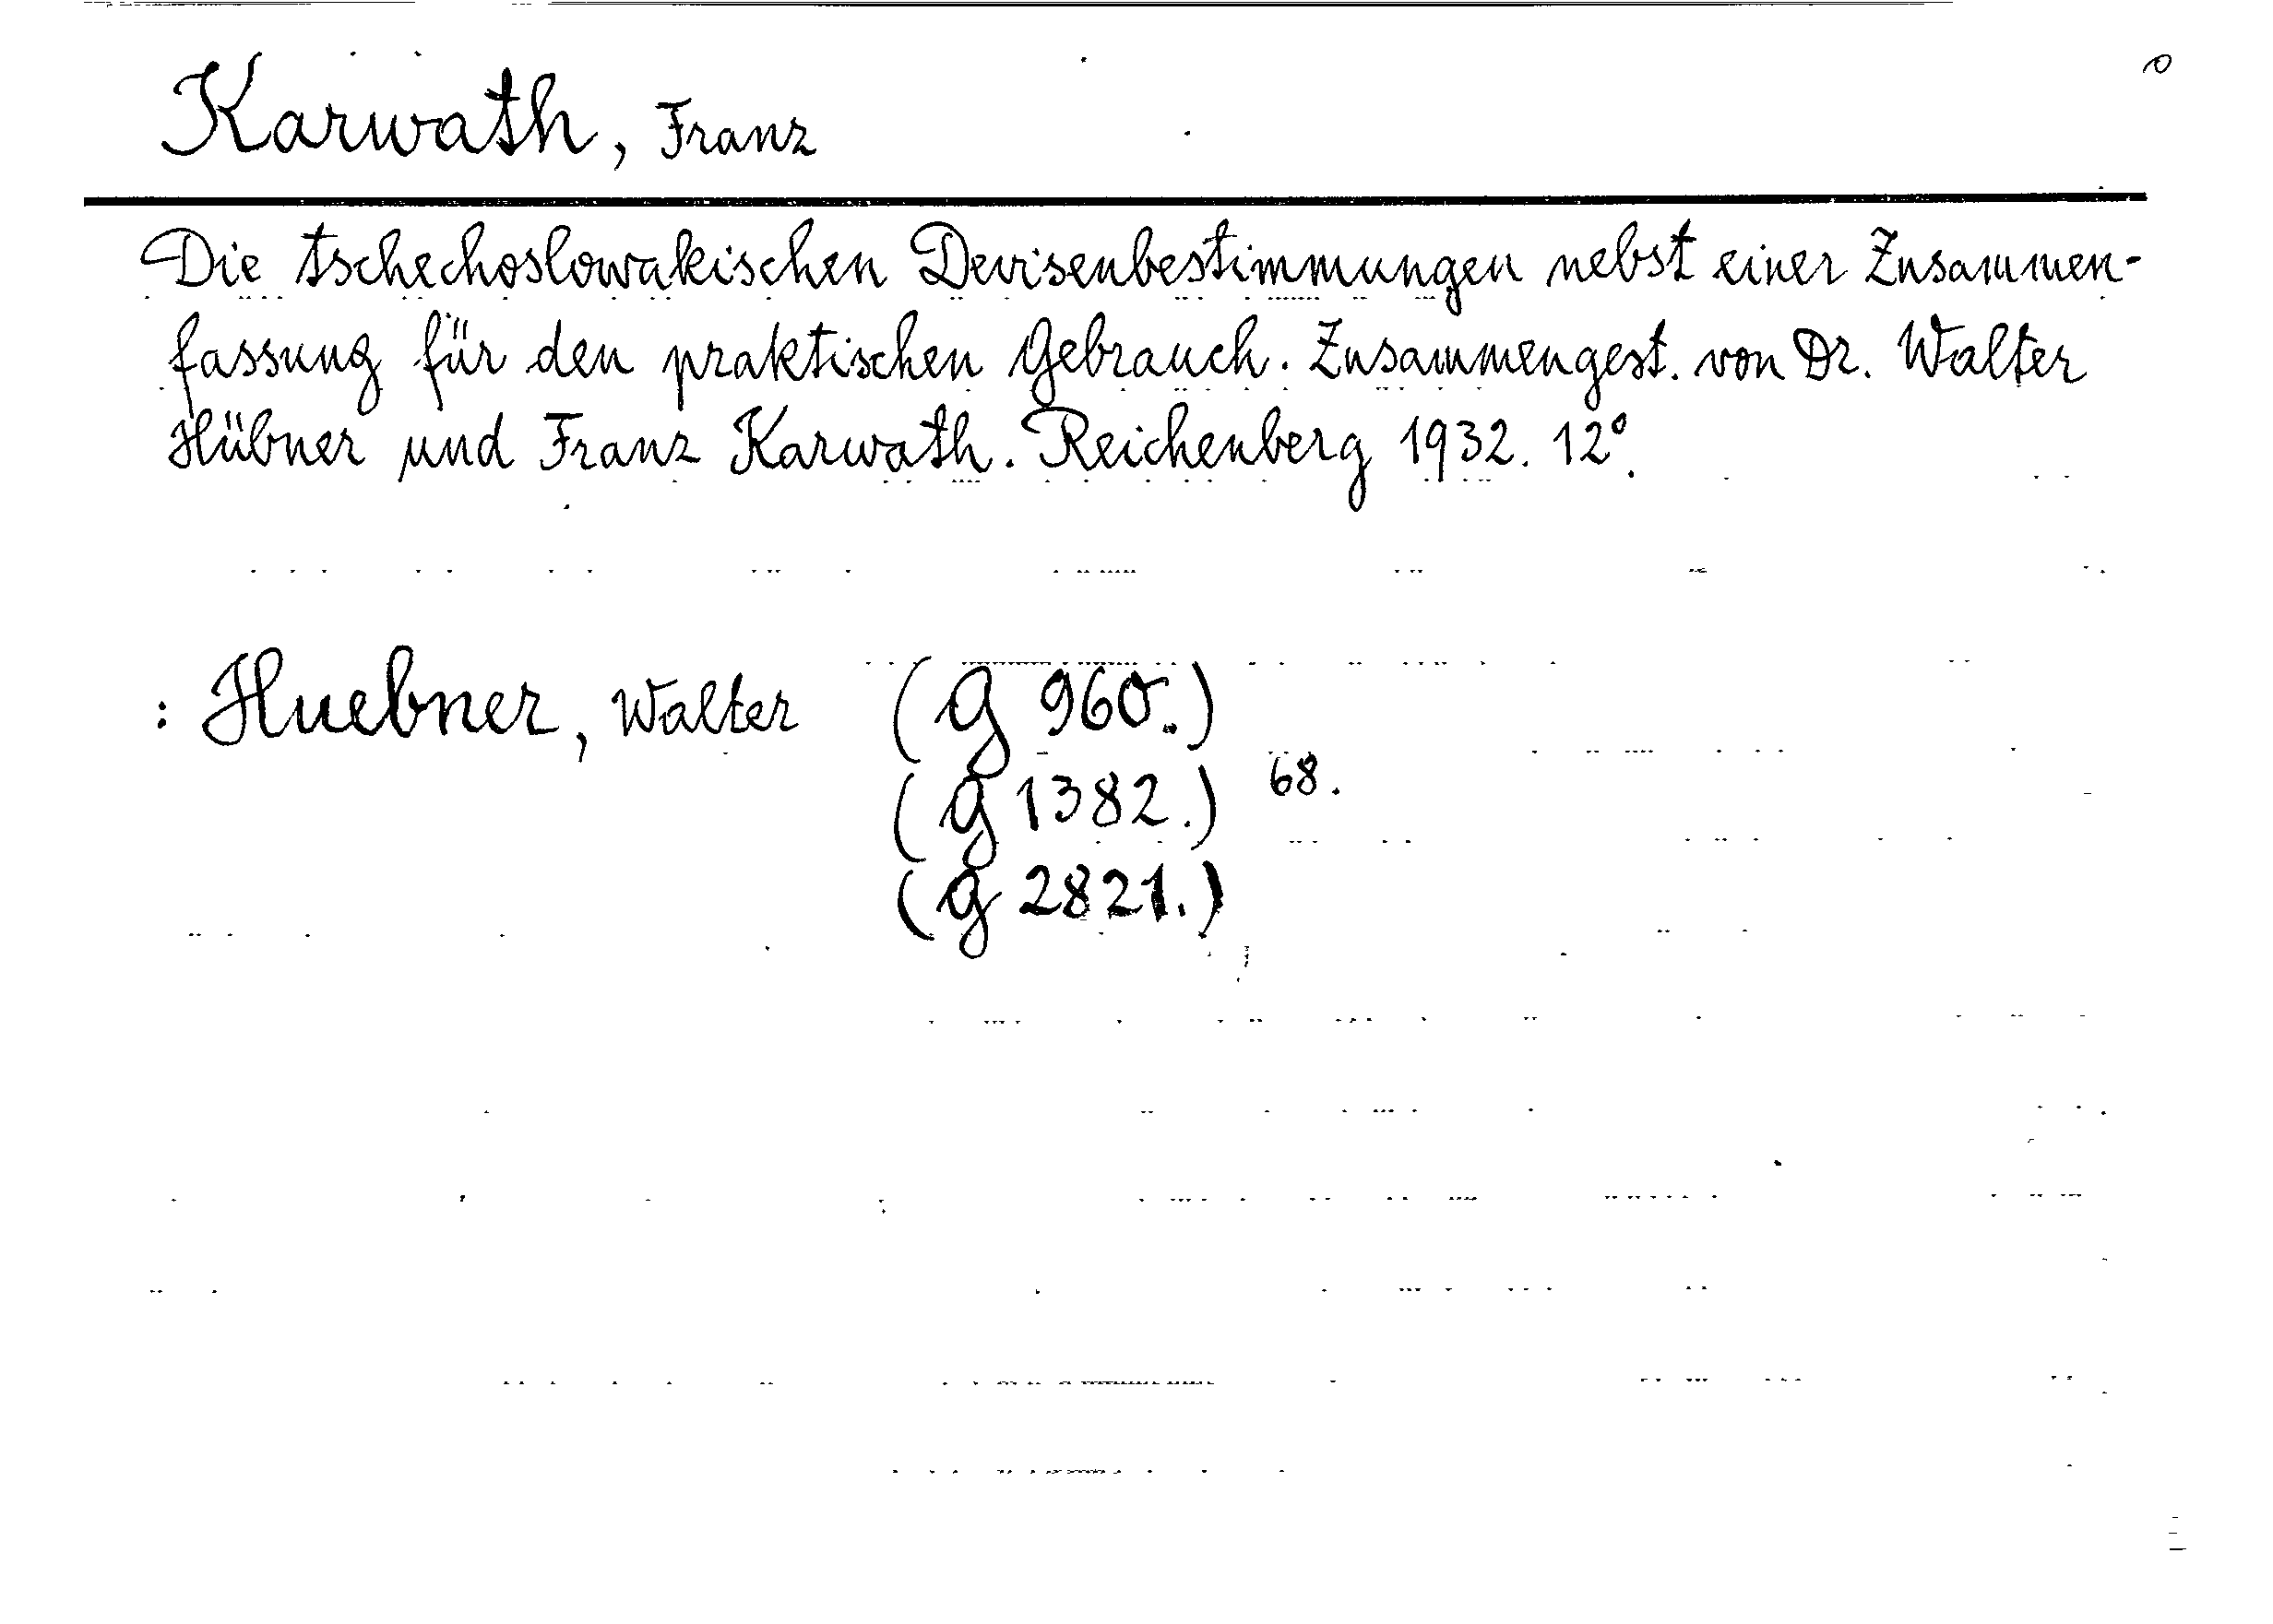 Karwath, Franz
Die tschechoslowakischen Devisenbestimmungen nebst einer Zusammen-
fassung für den praktischen Gebrauch. Zusammengest. von Dr. Walter
Hübner und Franz Karwath. Reichenberg 1932. 12°.
: Huebner, Walter (g 960.)
(g 1382.) 68.
(g 2821.)